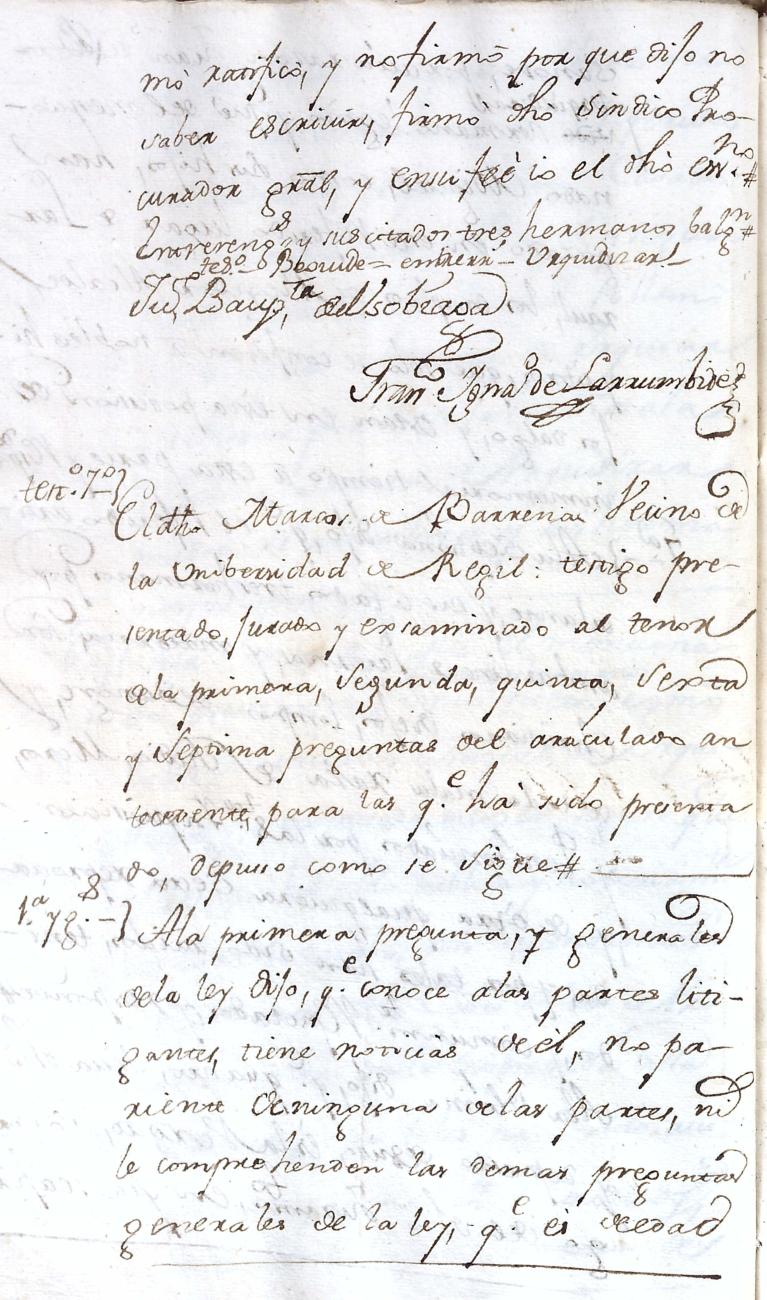 mó ratificó, y no firmó por que dijo no
saber escrivir, firmo dho Sindico Pro-
curador gral, y en su feè io el dho essno.#
Entrereng.s y sus citados tres hermanos balgn#
tesº.- Beouide= entrerr- Urquidizar-
Ju.º Baup.ta de Usobraga
Fran.co Ignaº de Larrumbide
test.º 7º-}
El dho Marcos de Barrena Vecino de
la Unibersidad de Regil: testigo pre-
sentado, jurado y exsaminado al tenor
de la primera, segunda, quinta, sexta
y septima preguntas del articulado an
tecedente, para las q.e ha sido presenta
do, depuso como se sigue#
1.ª y g.s-}
A la primera pregunta, y generales
de la ley dijo, q.e conoce a las partes liti-
gantes, tiene noticias de él, no pa-
riente de ninguna de las partes, ni
le comprehenden las demas preguntas
generales de la ley, q.e es de edad